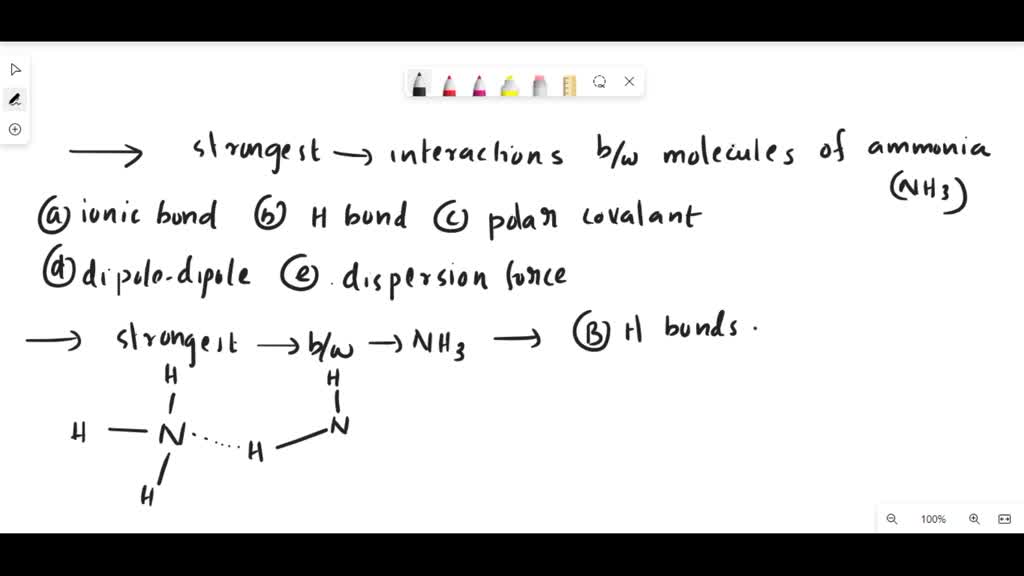 → strongest → interactions b/w molecules of ammonia
(NH3)
(a) ionic bond (b) H bond (c) polar covalant
(d) dipole-dipole (e) dispersion force
→ strongest → b/w → NH3 → (B) H bonds.
H H
H — N ..... H — N
H
100%